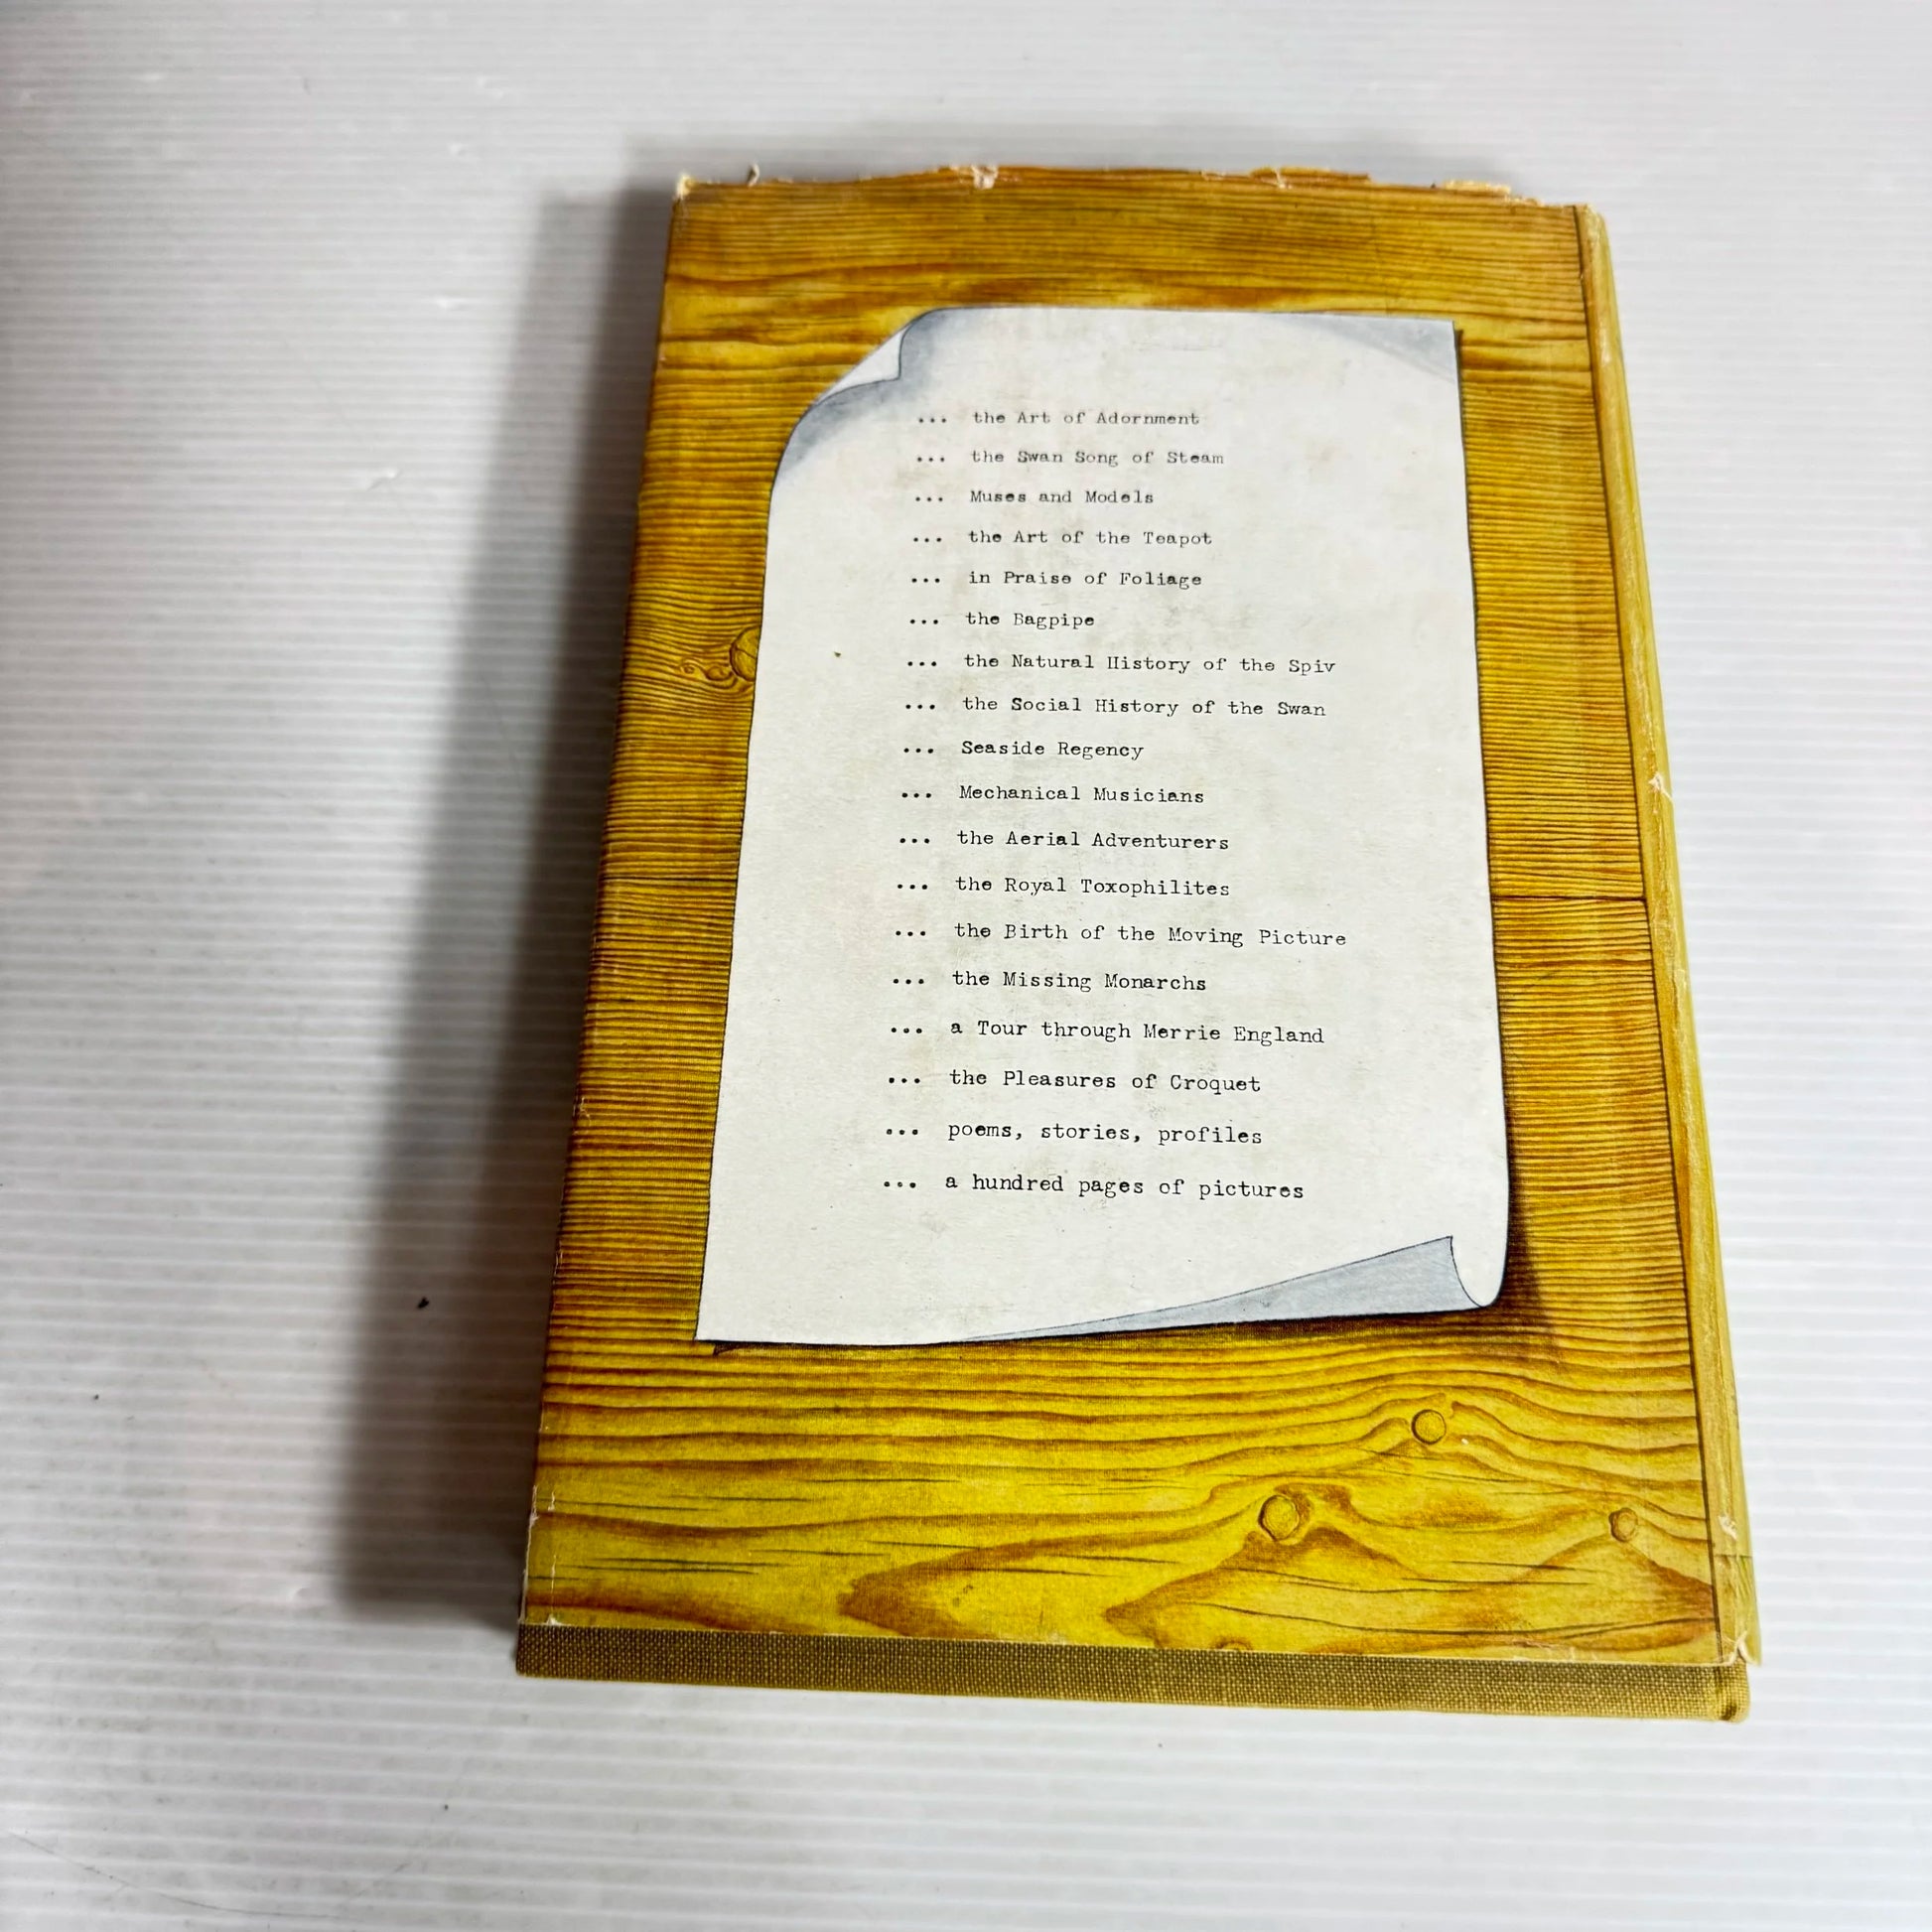 ... the Art of Adornment
... the Swan Song of Steam
... Muses and Models
... the Art of the Teapot
... in Praise of Foliage
... the Bagpipe
... the Natural History of the Spiv
... the Social History of the Swan
... Seaside Regency
... Mechanical Musicians
... the Aerial Adventurers
... the Royal Toxophilites
... the Birth of the Moving Picture
... the Missing Monarchs
... a Tour through Merrie England
... the Pleasures of Croquet
... poems, stories, profiles
... a hundred pages of pictures